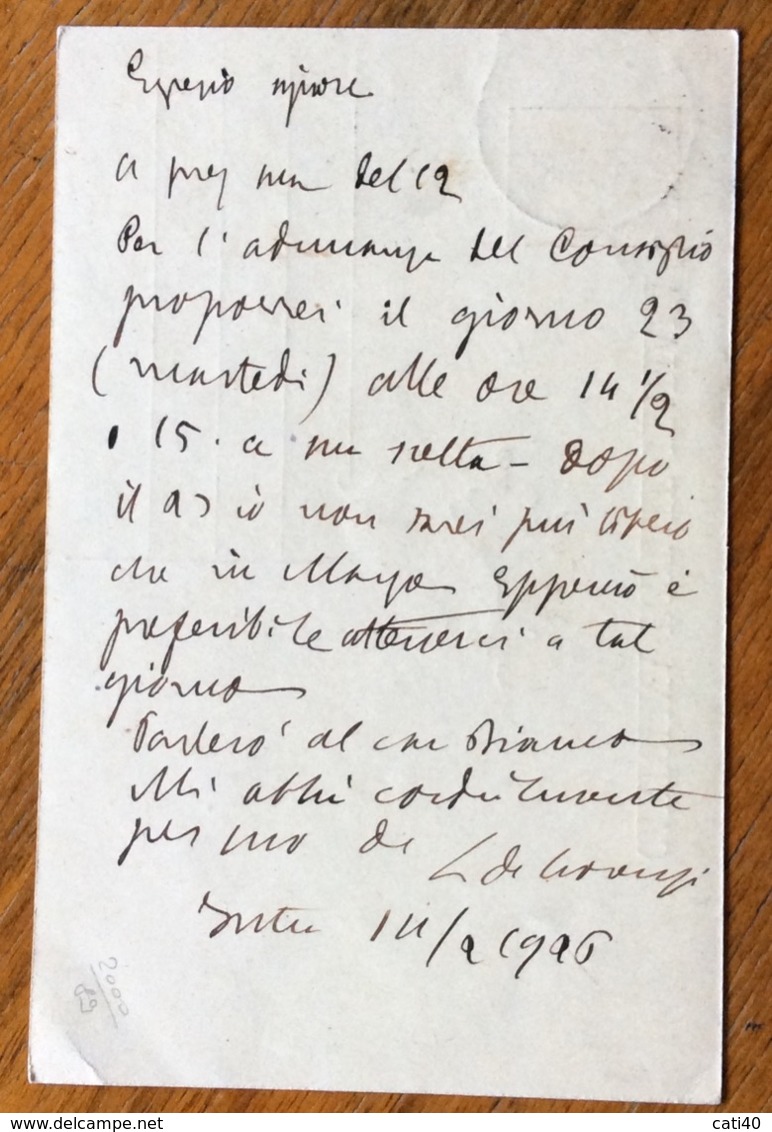 Egregio signore
a preg sua del 12
Per l'adunanza del Consiglio
proporrei il giorno 23
(martedì) alle ore 14 1/2
o 15. a sua scelta - Dopo
il 23 io non sarei più libero
che in Marzo Epperciò è
preferibile attenerci a tal
giorno
Parlerò al
Mi abbia cordialmente
per suo
1926
2000
delcampe.net
cati40